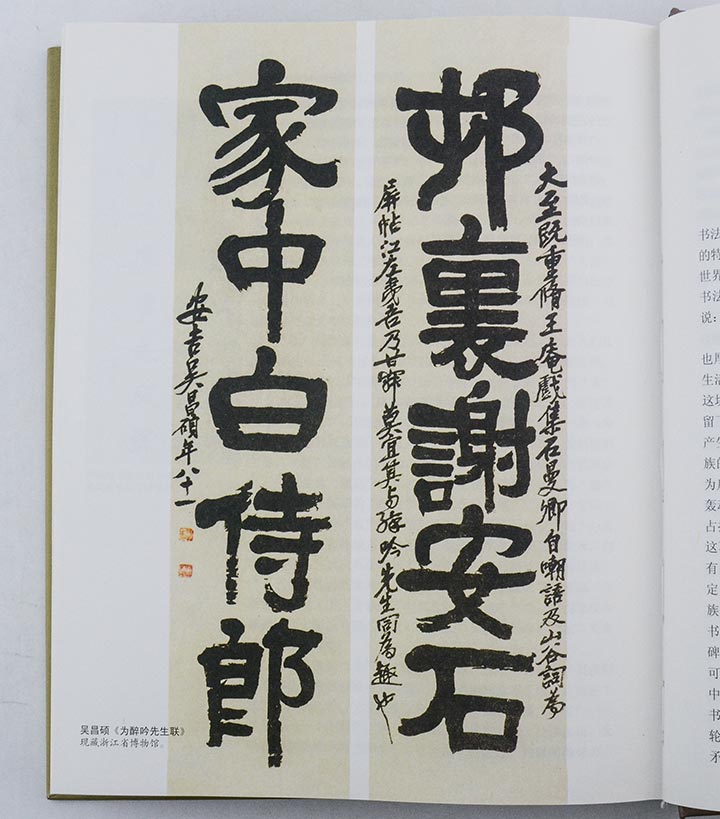 邨裏謝安石
大至既重脩王庵戲集石曼卿自嘲語及山谷詞為
屏帖江左夷吾乃甘莫宜其与吟先生同為趣也
家中白侍郎
安吉吳昌碩年八十一
吴昌硕《为醉吟先生联》
现藏浙江省博物馆。
书法
的特
世界
书法
说：
也
生活
这
留
产
族的
为
轰
占
这
有
定
族
书
碑
可
中
书
轮
矛